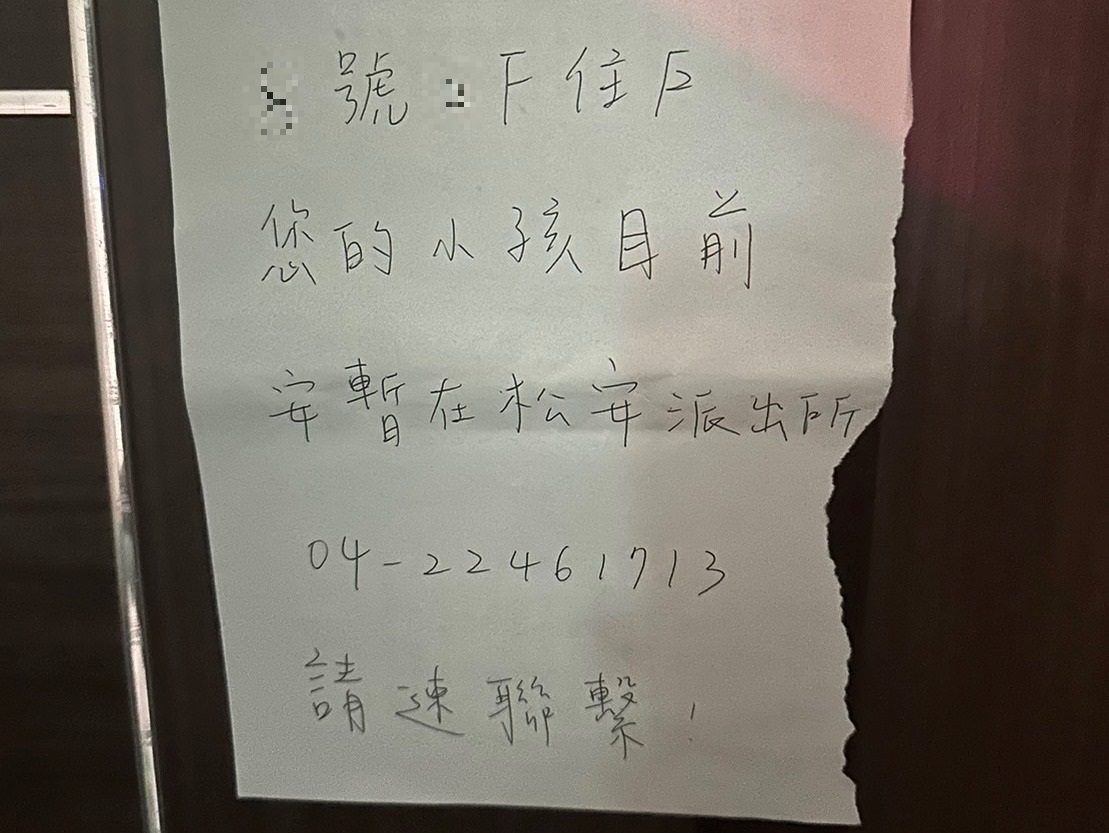 號 F住戶
您的小孩目前
安暫在松安派出所
04-22461713
請速聯繫!